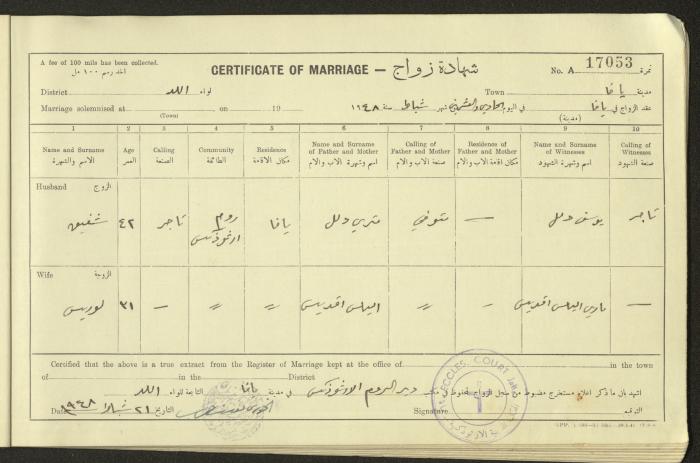 A fee of 100 mils has been collected.
CERTIFICATE OF MARRIAGE — شهادة زواج
No. A 17053 نمرة
District اللد لواء Town يافا مدينة
Marriage solemnised at on 19
(Town)
عقد الزواج في يافا في اليوم الحادي والعشرين شهر شباط سنة ١٩٤٨
(مدينة)
1 2 3 4 5 6 7 8 9 10
Name and Surname Age Calling Community Residence Name and Surname of Father and Mother Calling of Father and Mother Residence of Father and Mother Name and Surname of Witnesses Calling of Witnesses
الاسم والشهرة العمر الصنعة الطائفة مكان الاقامة اسم وشهرة الاب والام صنعة الاب والام مكان اقامة الاب والام اسم وشهرة الشهود صنعة الشهود
Husband الزوج
شفيق ٤٢ تاجر روم ارثوذكس يافا متري دلل متوفي — يوسف دلل تاجر
Wife الزوجة
لوريس ٣١ —〃 〃 الياس 〃 – الياس —
Certified that the above is a true extract from the Register of Marriage kept at the office of in the town
of in the District
اشهد بان ما ذكر اعلاه مستخرج مضبوط من سجل الزواج المحفوظ في مكتب دير الروم الارثوذكس في مدينة يافا التابعة للواء اللد
Date التاريخ ٢١ شباط ١٩٤٨ Signature التوقيع
ECCLES. COURT JAFFA